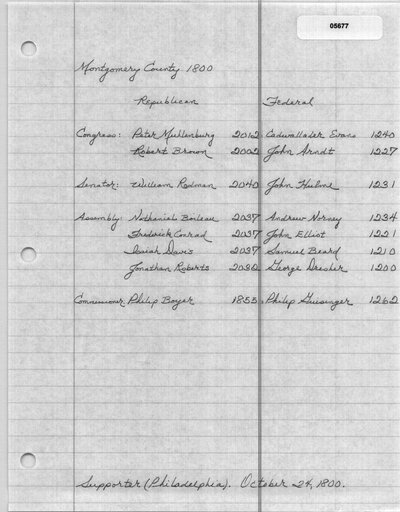 05677
Montgomery County 1800
Republican Federal
Congress: Peter Muhlenburg 2012 Cadwallader Evans 1240
Robert Brown 2002 John Arndt 1227
Senator: William Rodman 2040 John Hulme 1231
Assembly: Nathanial Boileau 2037 Andrew Norney 1234
Frederick Conrad 2037 John Elliot 1221
Isaiah Davis 2037 Samuel Beard 1210
Jonathan Roberts 2032 George Dresher 1200
Commissioner: Philip Boyer 1855 Philip Guisinger 1262
Supporter (Philadelphia). October 24, 1800.